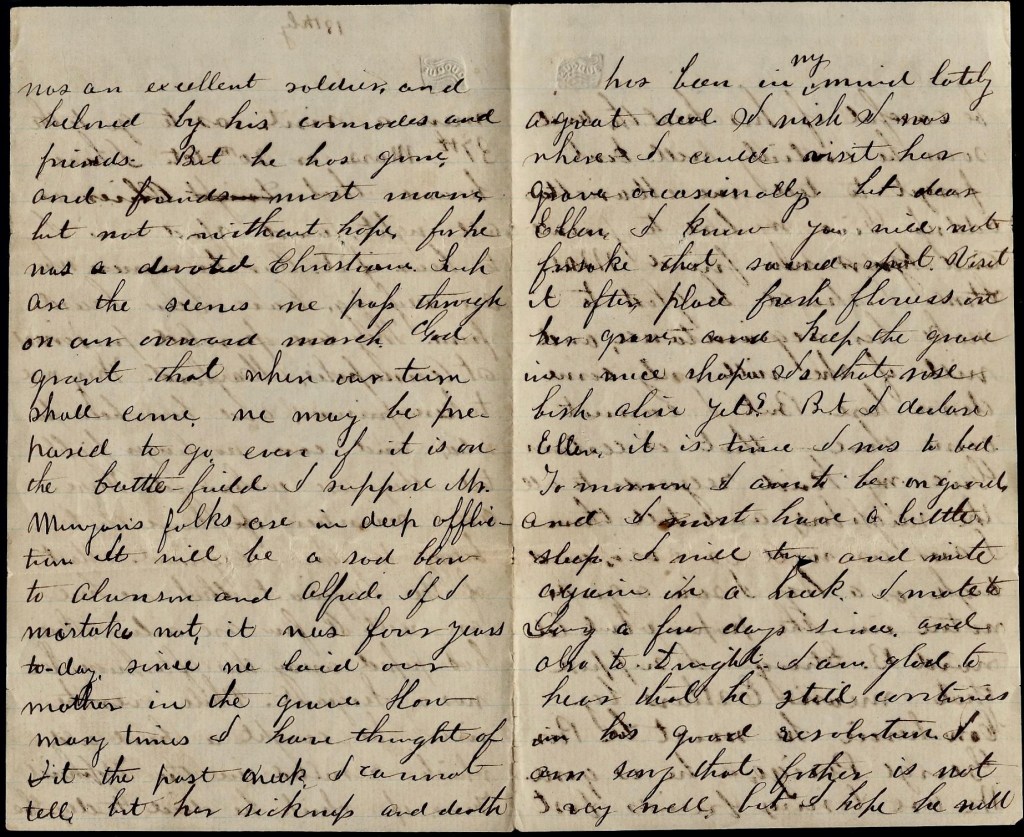 was an excellent soldier, and
beloved by his comrades and
friends. But he has gone,
and friends must mourn,
but not without hope, for he
was a devoted Christian. Such
are the scenes we pass through
on our onward march. God
grant that when our turn
shall come, we may be pre-
pared to go, even if it is on
the battle-field. I suppose Mr.
folks are in deep afflic-
tion. It will be a sad blow
to Alanson and Alfred. If I
mistake not, it was four years
to-day, since we laid our
mother in the grave. How
many times I have thought of
it the past week I cannot
tell, but her sickness and death
has been in my mind lately
a great deal. I wish I was
where I could visit her
grave occasionally, but dear
Ellen, I know you will not
forsake that sacred spot. Visit
it often, place fresh flowers on
her grave, and keep the grave
in nice shape. Is that rose
bush alive yet? But I declare
Ellen, it is time I was to bed.
To-morrow I am to be on guard,
and I must have a little
sleep. I will try and write
again in a week. I wrote to
a few days since, and
also to Dwight. I am glad to
hear that he still continues
in his good resolution. I
am sorry that father is not
very well, but I hope he will